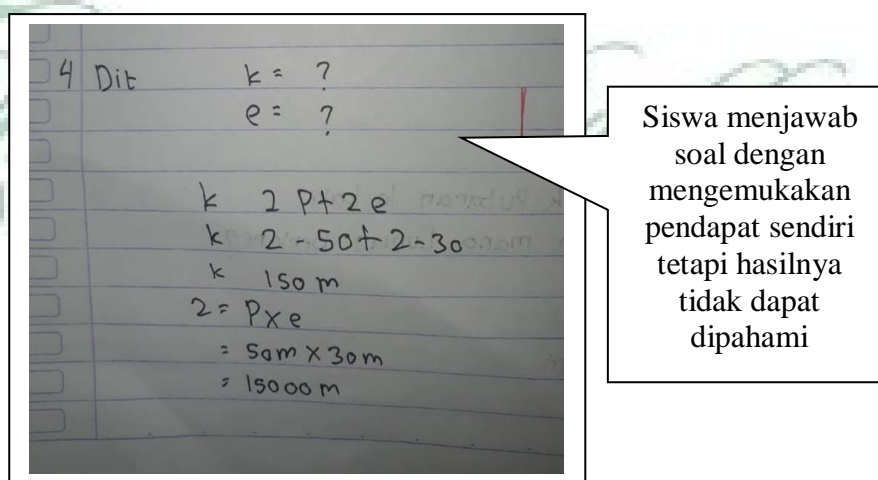 4 Dit k = ?
e = ?
k 2 P + 2 e
k 2 - 50 + 2 - 30
k 150 m
2 = P x e
= 50 m x 30 m
= 15000 m
Siswa menjawab
soal dengan
mengemukakan
pendapat sendiri
tetapi hasilnya
tidak dapat
dipahami